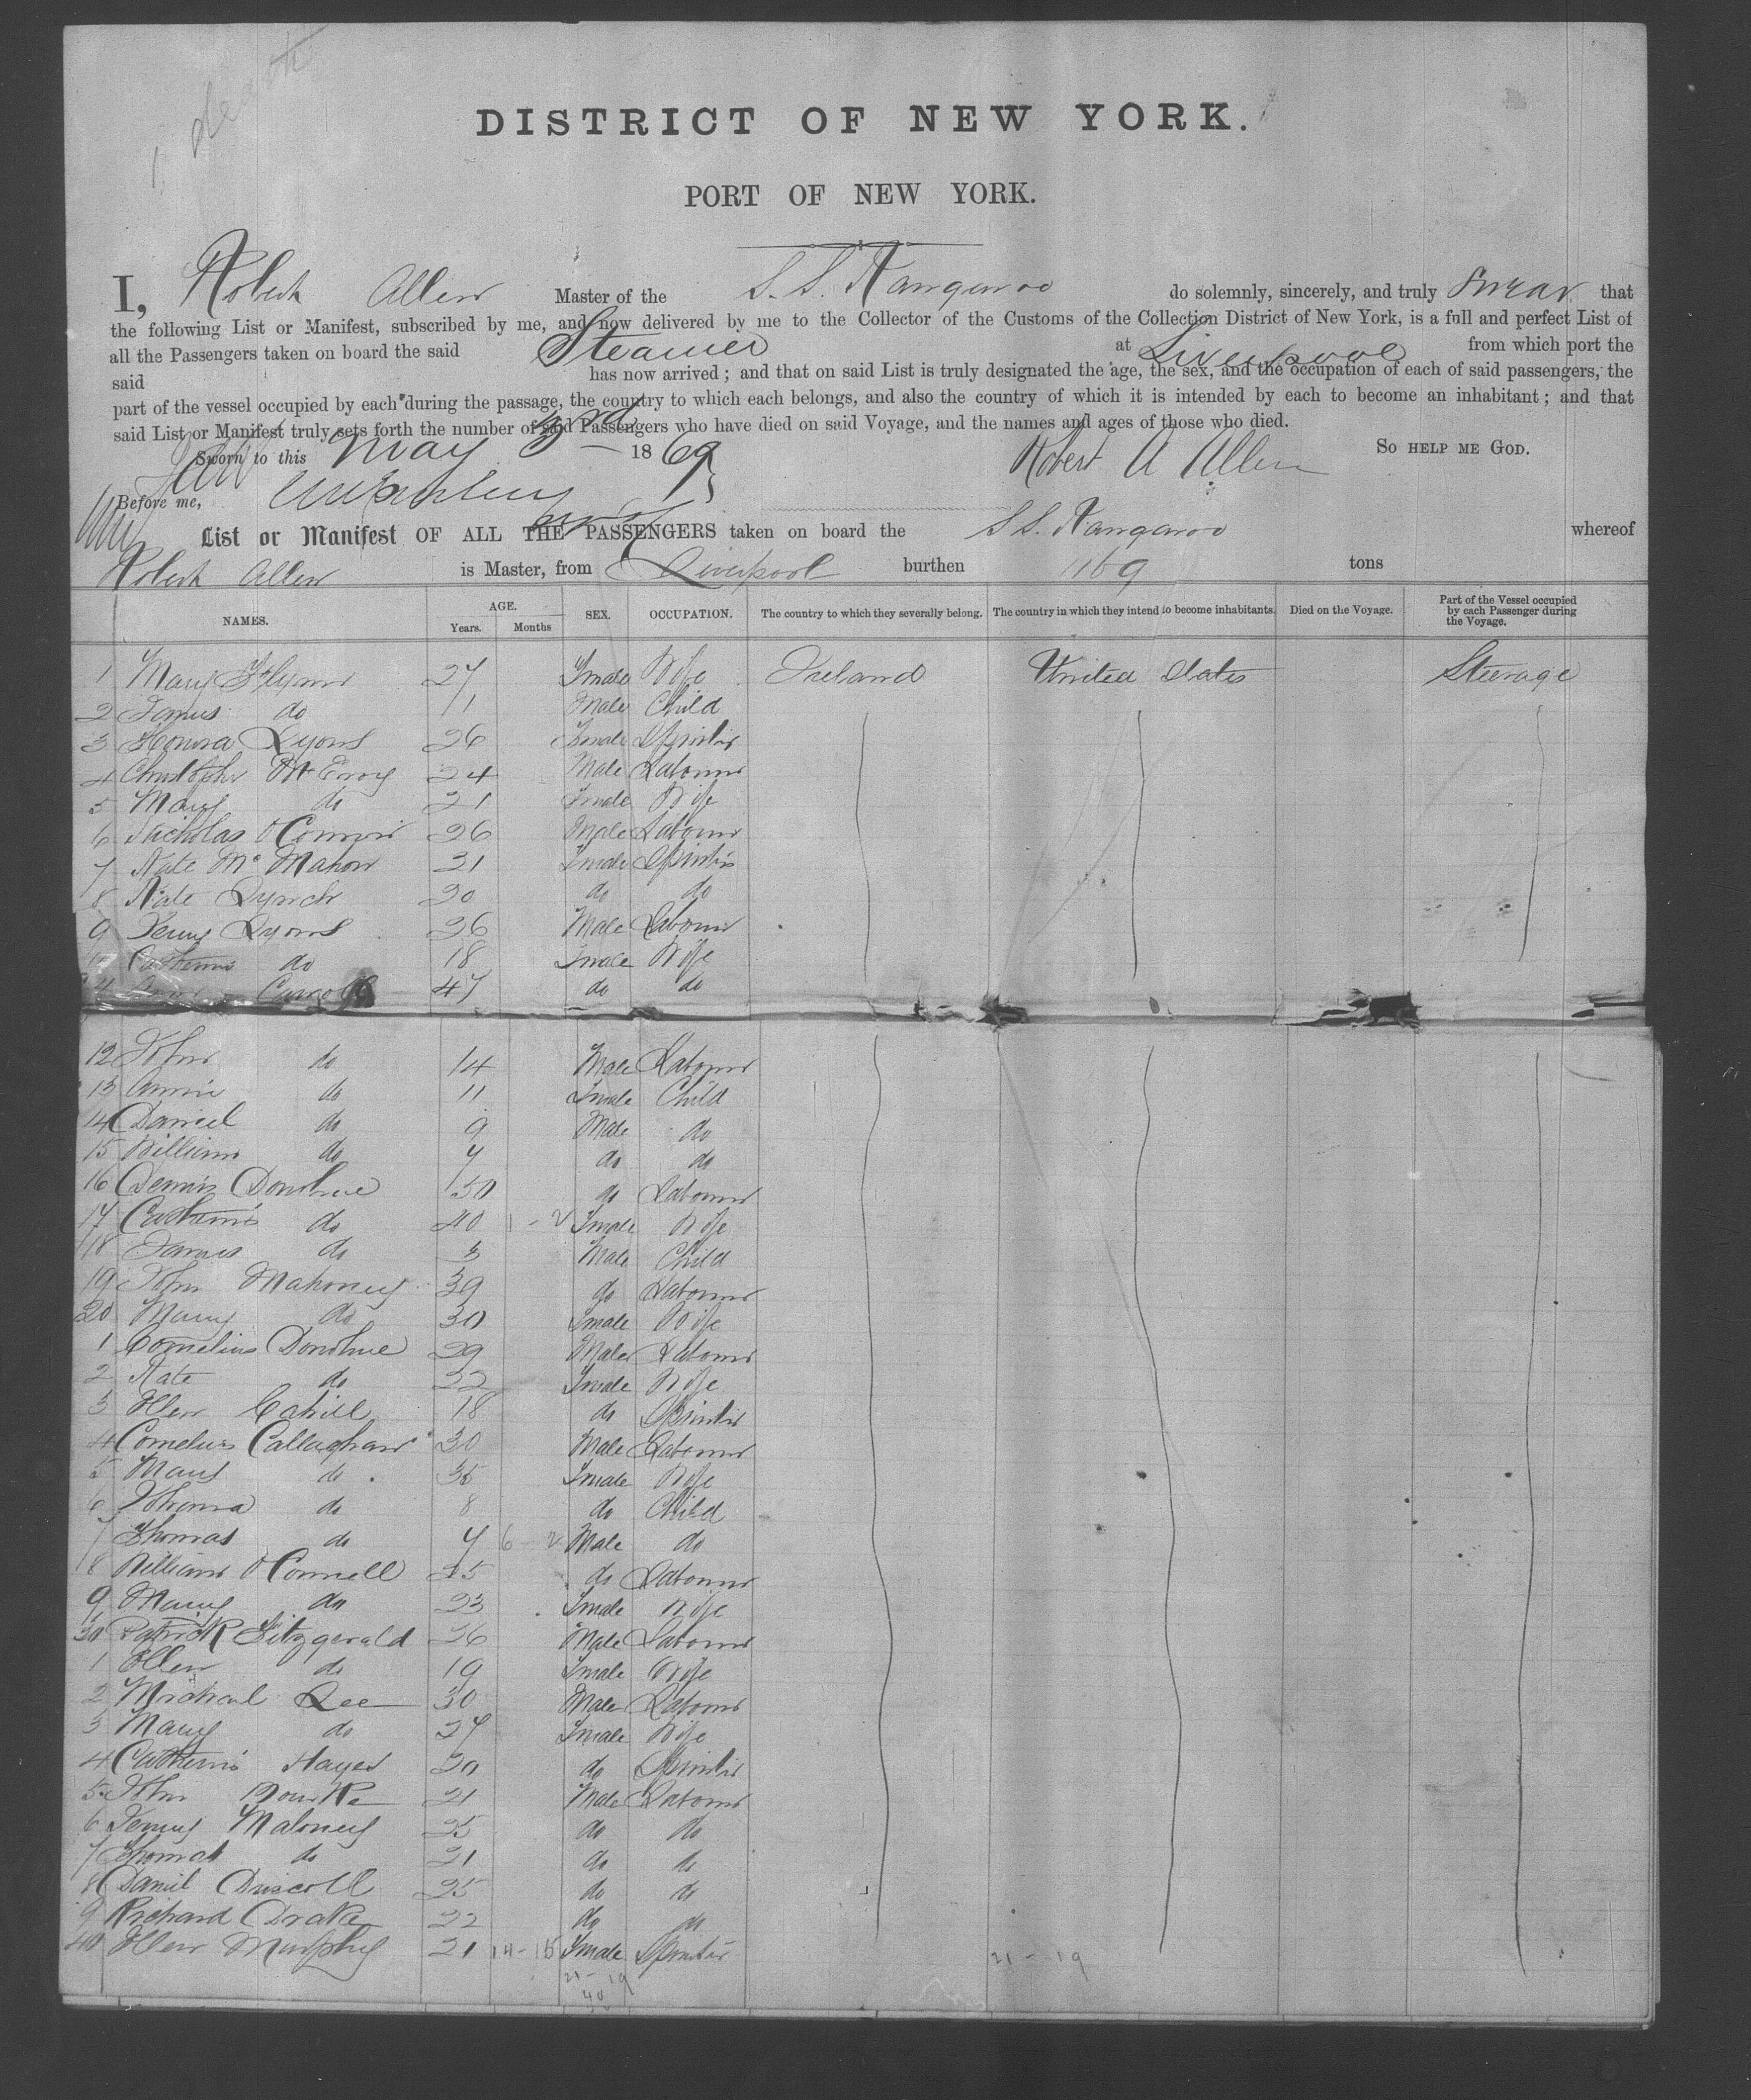 1 death
DISTRICT OF NEW YORK.
PORT OF NEW YORK.
I, Robert Allen Master of the S.S. Kangaroo do solemnly, sincerely, and truly Swear that
the following List or Manifest, subscribed by me, and now delivered by me to the Collector of the Customs of the Collection District of New York, is a full and perfect List of
all the Passengers taken on board the said Steamer at Liverpool from which port the
said has now arrived; and that on said List is truly designated the age, the sex, and the occupation of each of said passengers, the
part of the vessel occupied by each during the passage, the country to which each belongs, and also the country of which it is intended by each to become an inhabitant; and that
said List or Manifest truly sets forth the number of said Passengers who have died on said Voyage, and the names and ages of those who died.
Sworn to this May 3rd 1869 Robert A Allen SO HELP ME GOD.
Before me,
List or Manifest OF ALL THE PASSENGERS taken on board the S S. Kangaroo whereof
Robert Allen is Master, from Liverpool burthen 1169 tons
NAMES. AGE. Years. Months SEX. OCCUPATION. The country to which they severally belong. The country in which they intend to become inhabitants. Died on the Voyage. Part of the Vessel occupied by each Passenger during the Voyage.
1 Mary Flynn 27 Female Wife Ireland United States Steerage
2 James do 11 Male Child
3 Honora Lyons 26 Female Spinster
4 Christopher McEvoy 24 Male Labourer
5 Mary do 21 Female Wife
6 Nicholas O'Connor 26 Male Labourer
7 Kate McMahon 21 Female Spinster
8 Kate Lynch 20 do do
9 Jerry Lyons 26 Male Labourer
10 Catherine do 18 Female Wife
Carroll 47 do do
12 John do 14 Male Labourer
13 Annie do 11 Female Child
14 Daniel do 9 Male do
15 William do 7 do do
16 Dennis Donohue 50 do Labourer
17 Catherine do 40 1 - 2 Female Wife
18 James do 3 Male Child
19 John Mahoney 39 do Labourer
20 Mary do 30 Female Wife
1 Cornelius Donohue 29 Male Labourer
2 Kate do 22 Female Wife
3 Ellen Cahill 18 do Spinster
4 Cornelius Callaghan 30 Male Labourer
5 Mary do 35 Female Wife
6 Johanna do 8 do Child
7 Thomas do 7 6 - 2 Male do
8 William O'Connell 25 do Labourer
9 Mary do 23 Female Wife
30 Patrick Fitzgerald 26 Male Labourer
1 Ellen do 19 Female Wife
2 Michael Lee 30 Male Labourer
3 Mary do 27 Female Wife
4 Catherine Hayes 20 do Spinster
5 John Bourke 21 Male Labourer
6 Jerry Maloney 25 do do
7 Thomas do 21 do do
8 Daniel Driscoll 25 do do
9 Richard Drake 22 do do
40 Ellen Murphy 21 14 - 15 Female Spinster
21 - 19 21 - 19
40